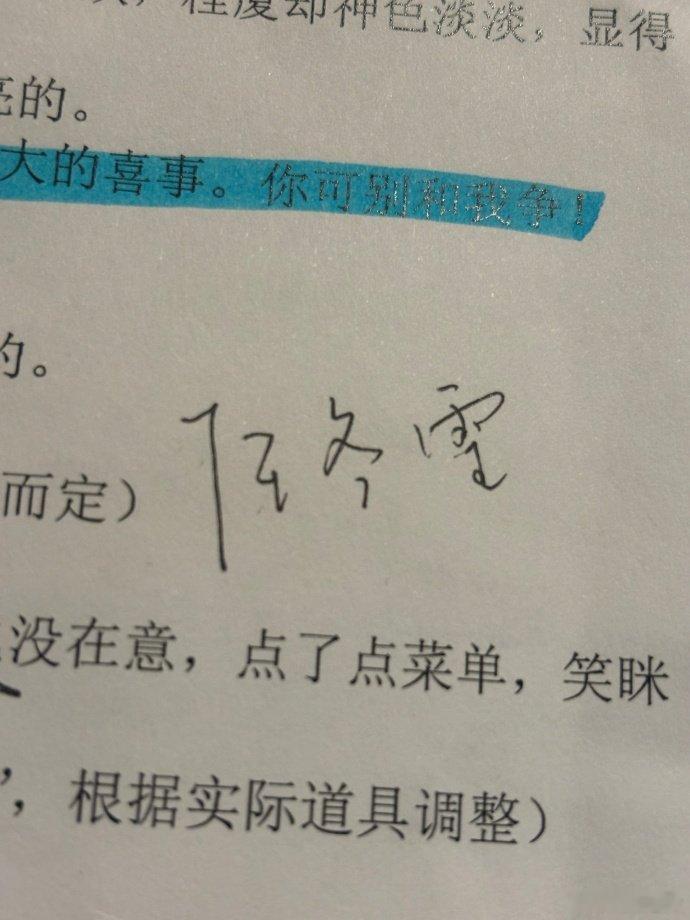 程厦却神色淡淡，显得
亮的。
大的喜事。你可别和我争！
的。
而定）
陈冬雪
没在意，点了点菜单，笑眯
”，根据实际道具调整）